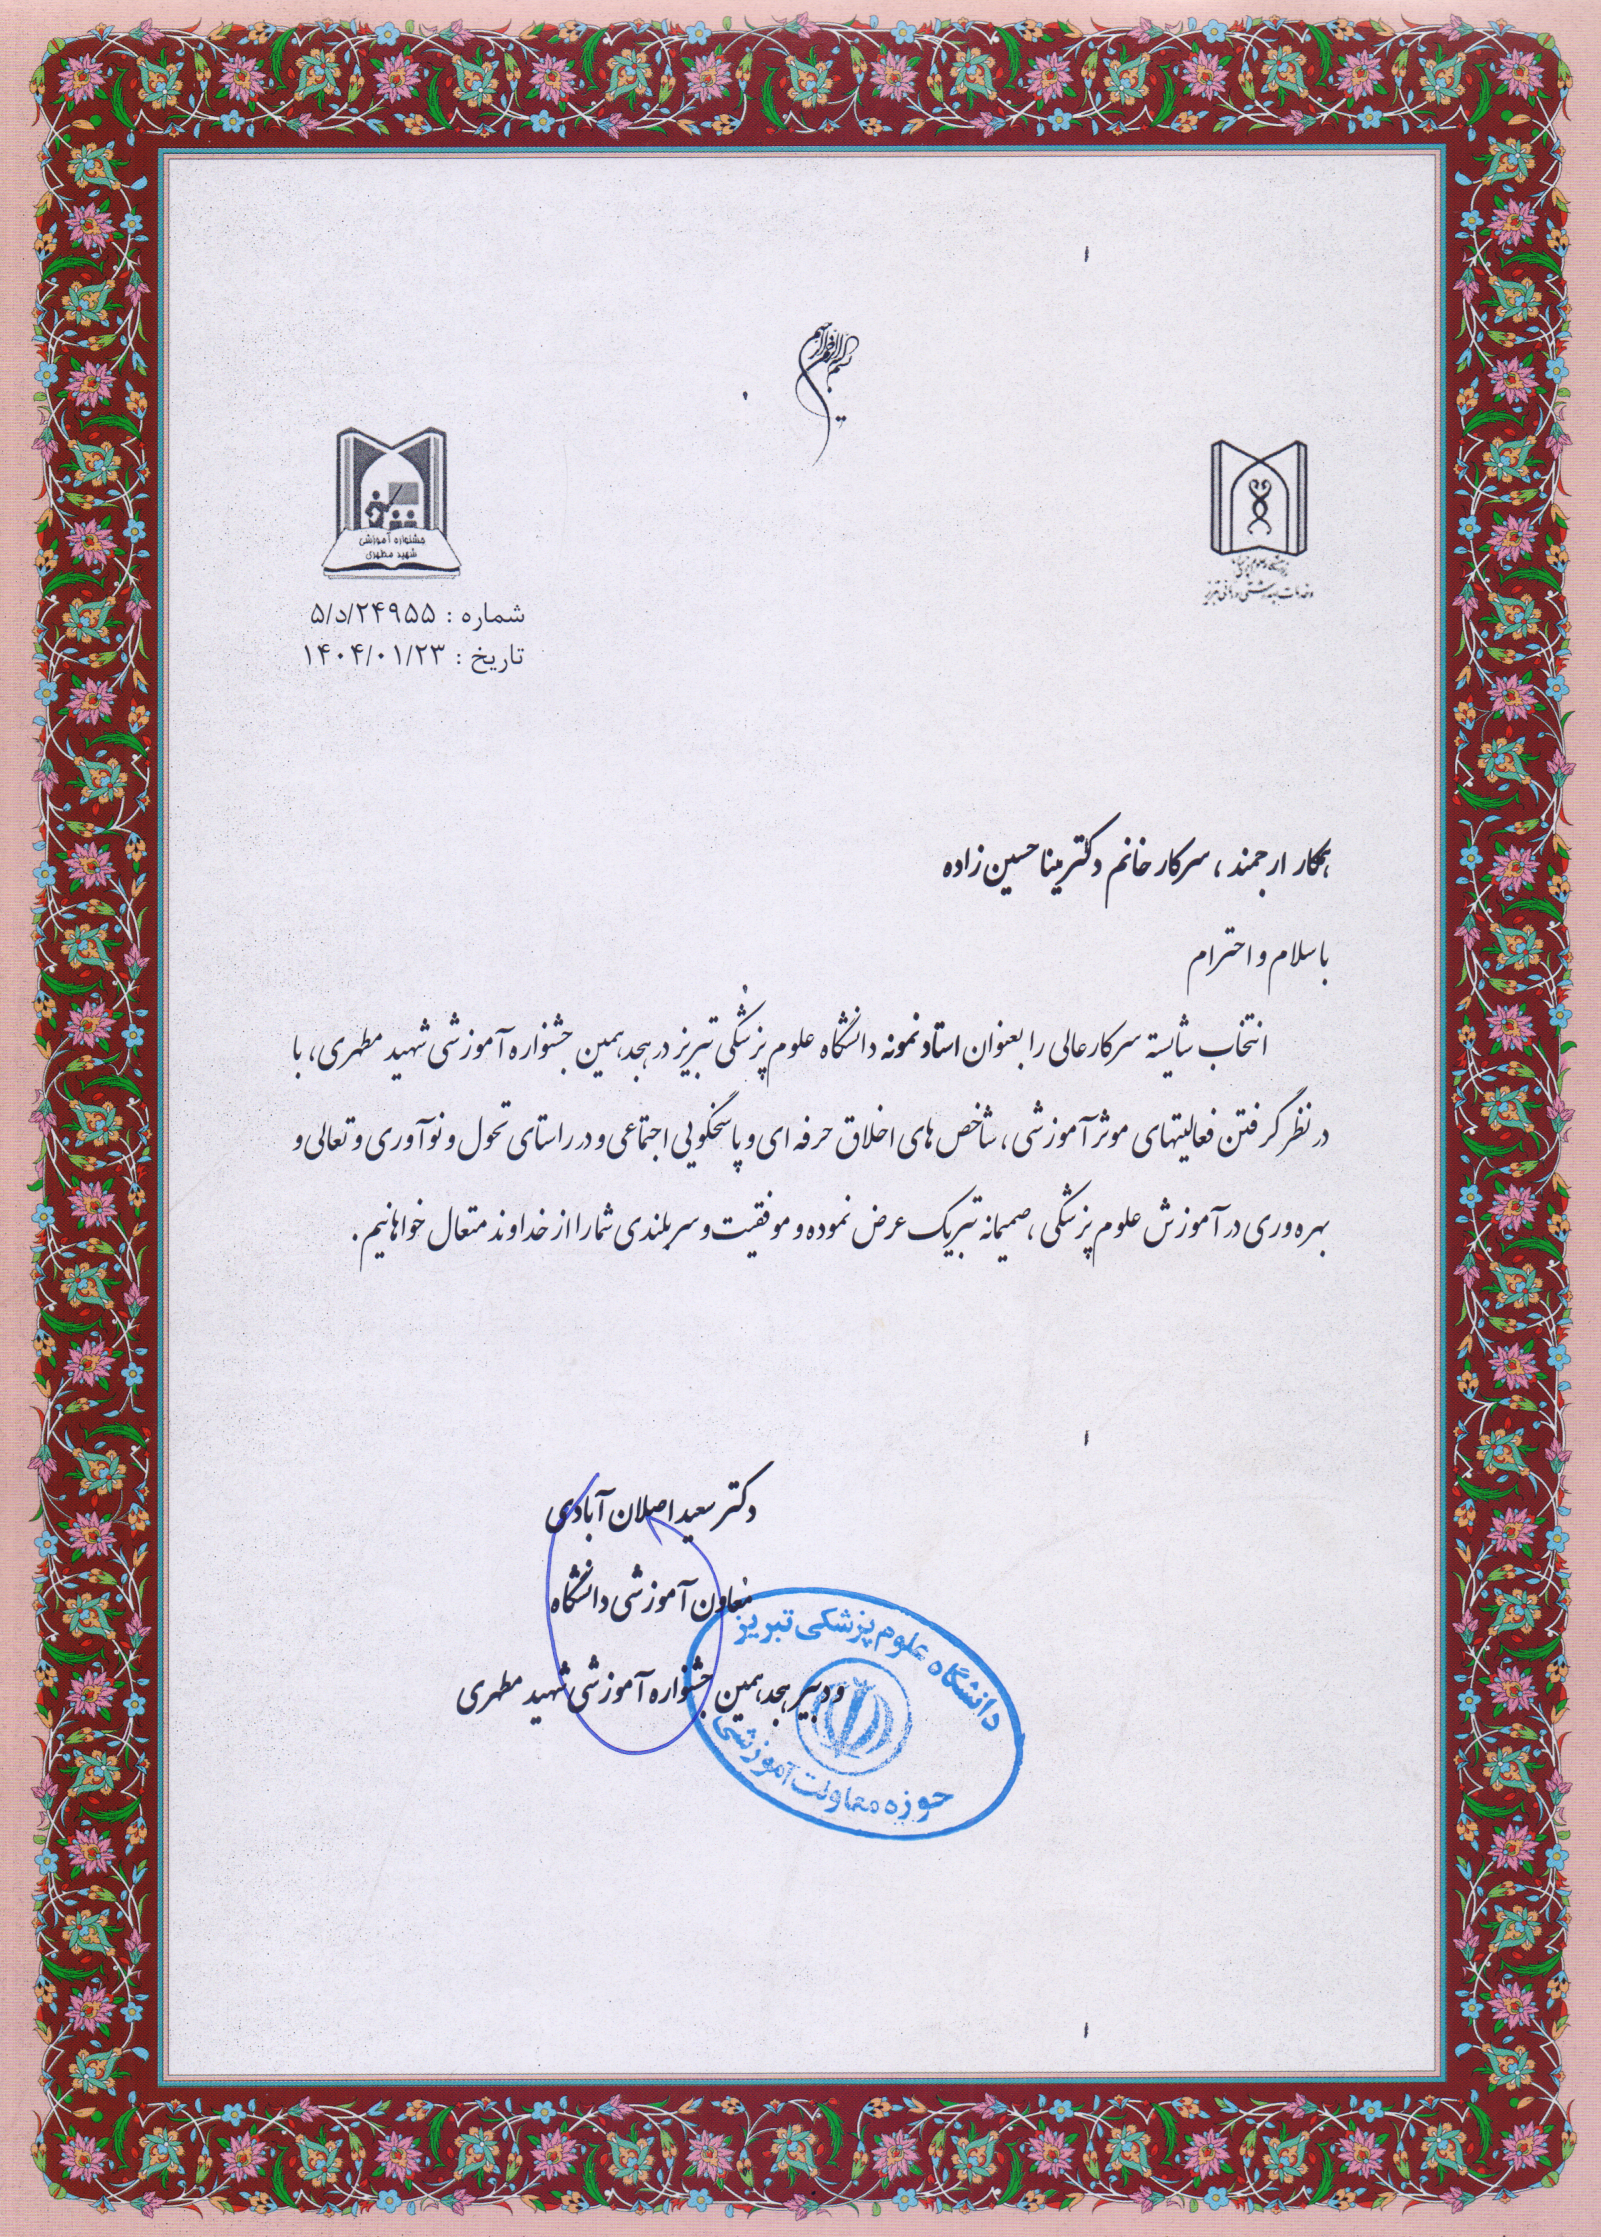 بسم الله الرحمن الرحیم
دانشگاه علوم پزشکی
و خدمات بهداشتی درمانی تبریز
جشنواره آموزشی
شهید مطهری
شماره : ۵/د/۲۴۹۵۵
تاریخ : ۱۴۰۴/۰۱/۲۳
همکار ارجمند ، سرکار خانم دکتر مینا حسین زاده
با سلام و احترام
انتخاب شایسته سرکارعالی را بعنوان استاد نمونه دانشگاه علوم پزشکی تبریز در هجدهمین جشنواره آموزشی شهید مطهری، با
در نظر گرفتن فعالیتهای موثر آموزشی ، شاخص های اخلاق حرفه ای و پاسخگویی اجتماعی و در راستای تحول و نوآوری و تعالی و
بهره وری در آموزش علوم پزشکی ، صمیمانه تبریک عرض نموده و موفقیت و سربلندی شما را از خداوند متعال خواهانیم .
دکتر سعید اصلان آبادی
معاون آموزشی دانشگاه
و دبیر هجدهمین جشنواره آموزشی شهید مطهری
دانشگاه علوم پزشکی تبریز
حوزه معاونت آموزشی